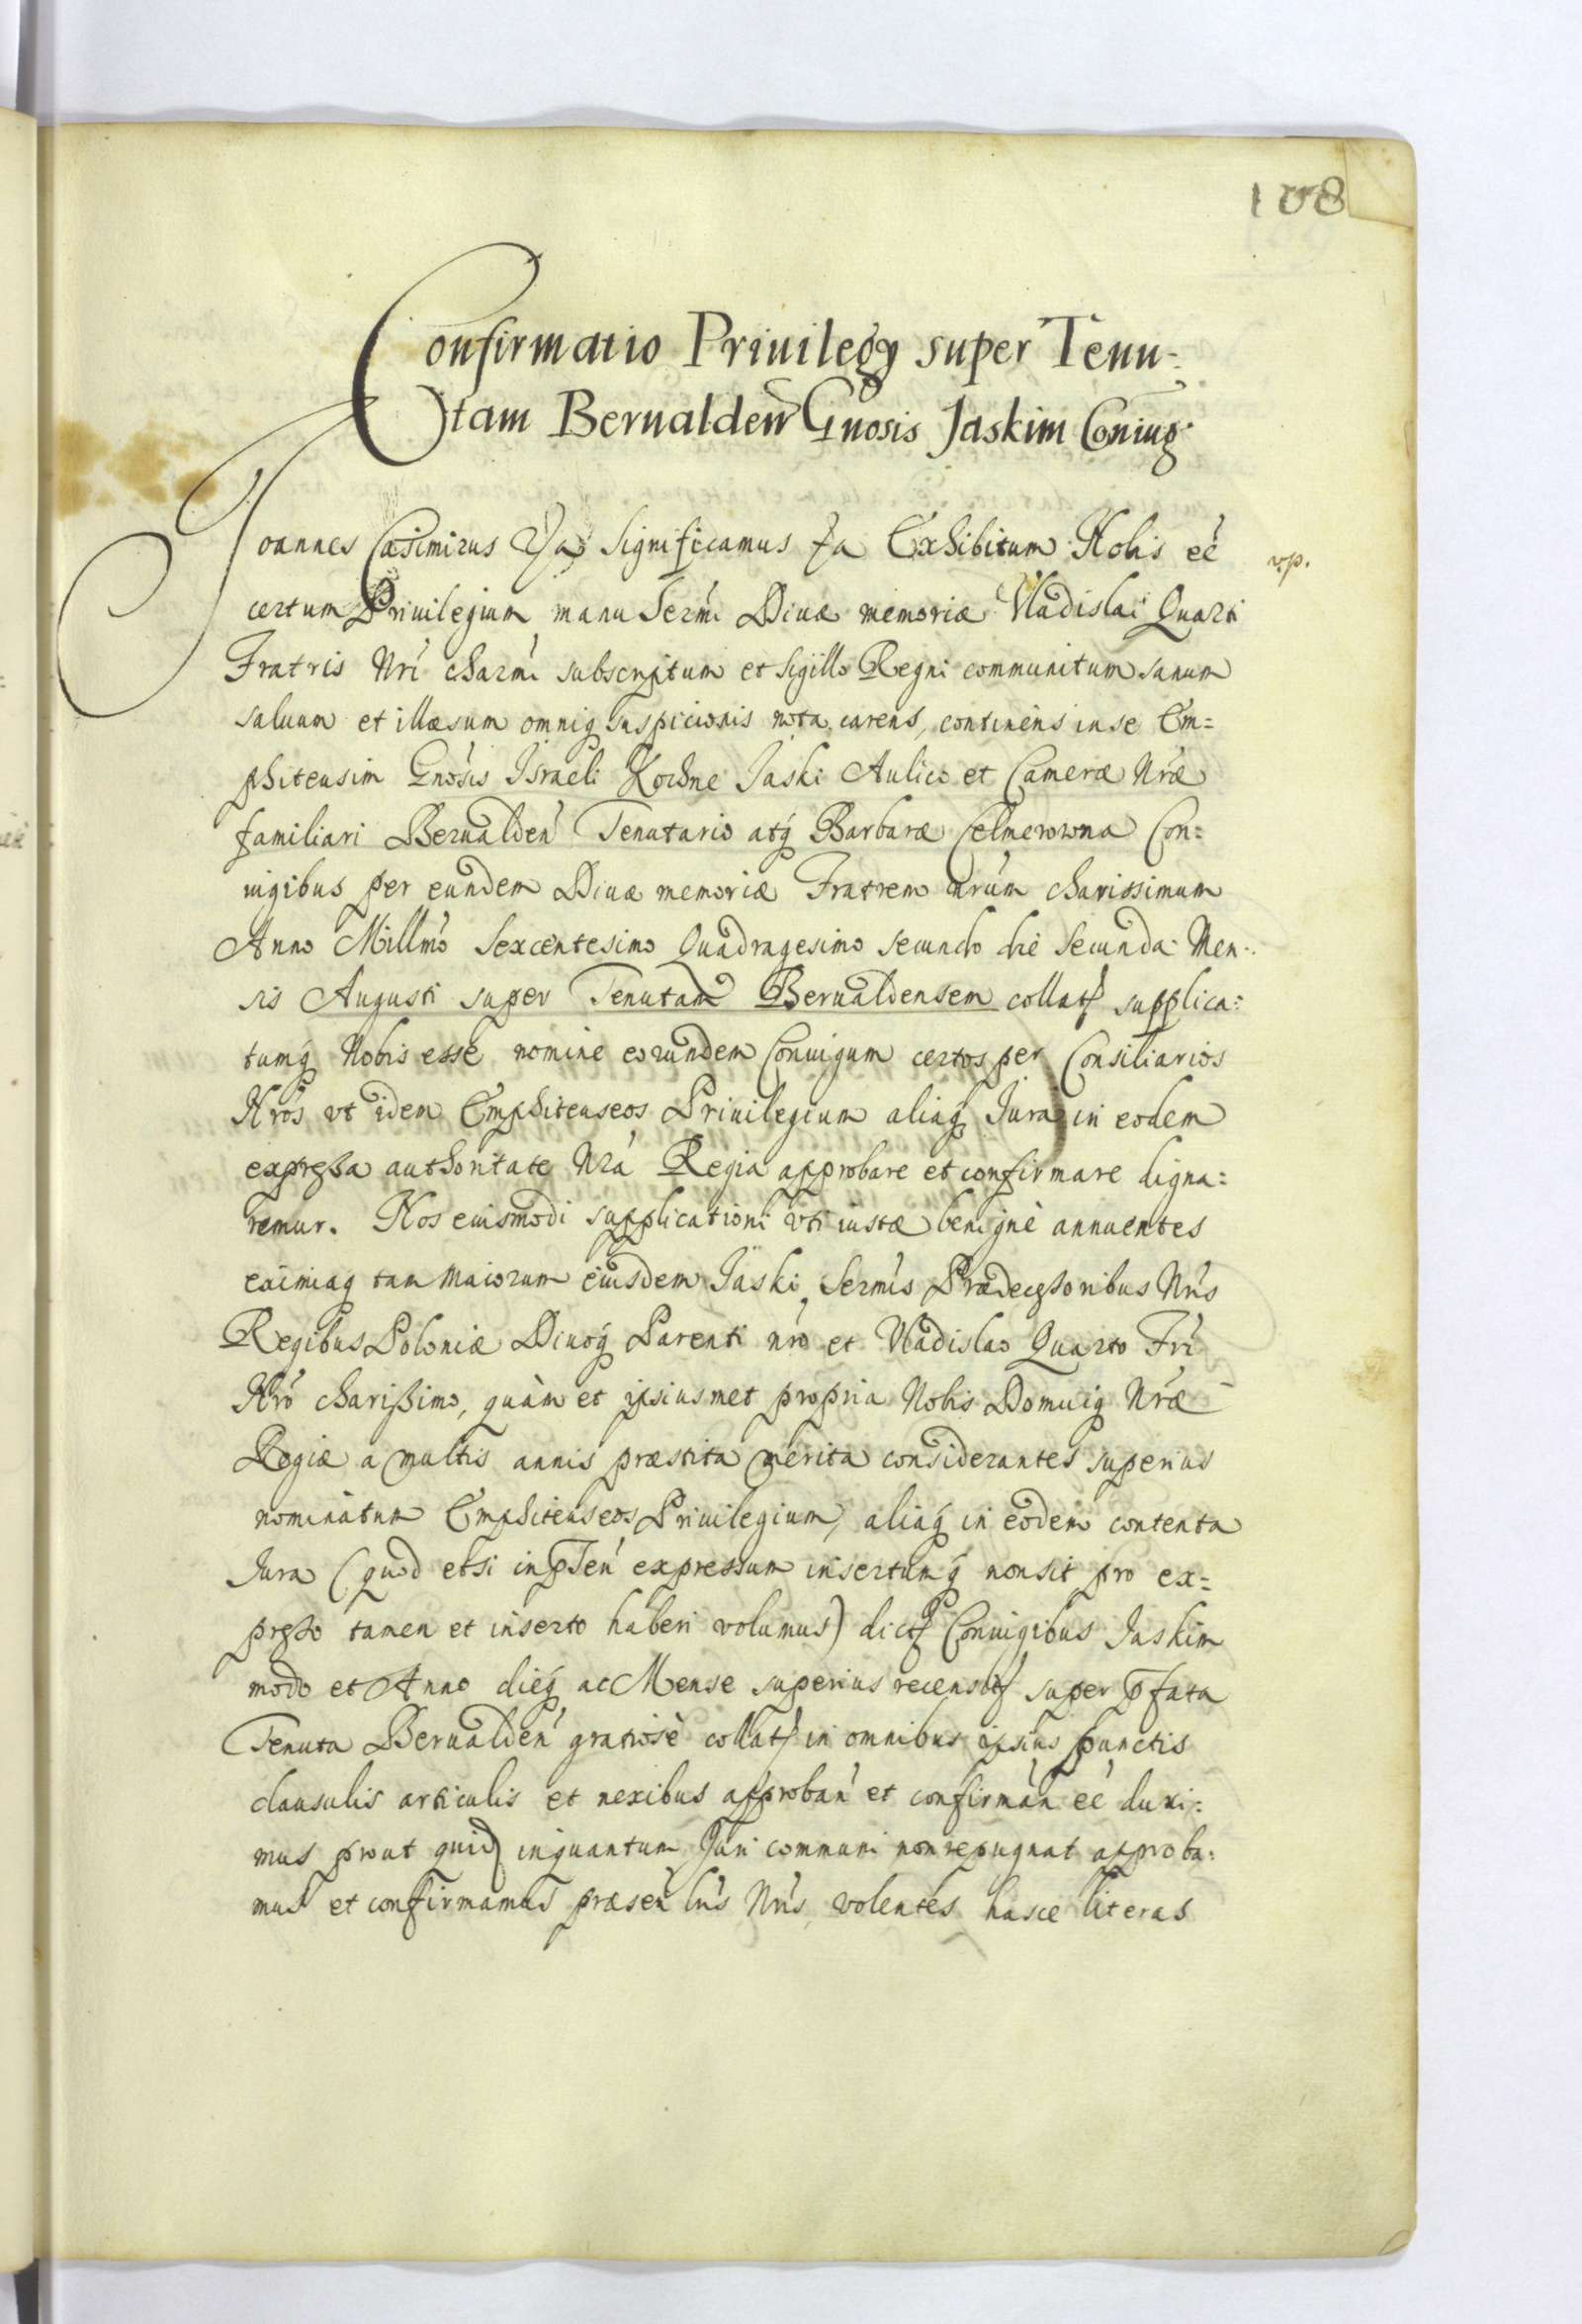 108
Confirmatio Priuilegÿ super Tenu-
tam Berualdeñ Gnosis Jaskim Coniug.
Joannes Casimirus Significamus Exhibitum Nobis eé
v.p.
certum Priuilegium manu Sermi Diuæ memoriæ Vladislai Quarti
Fratris Nri charmi subscriptum et Sigillo Regni communitum sanum
saluum et illæsum omniq suspicionis nota carens, continens in se Em=
phiteusim Gnosis Israeli Kochne Jaski Aulico et Cameræ Nræ
familiari Berualden Tenutario atq Barbaræ Celmerowna Con=
iugibus per eundem Diuæ memoriæ Fratrem nrum charissimum
Anno Millmo Sexcentesimo Quadragesimo secundo die Secunda Men-
sis Augusti super Tenutam Berualdensem collat supplica=
tumq Nobis esse nomine eorundem Coniugum certos per Consiliarios
Nros vt idem Emphiteuseos Priuilegium aliaq Jura in eodem
expreßa authoritate Nra Regia approbare et confirmare digna=
remur. Nos eiusmodi supplicationi vti iustæ benignè annuentes
eximiaq tam Maiorum eiusdem Jaski, Sermis Prædeceßoribus Nris
Regibus Poloniæ Diuoq Parenti nro et Vladislao Quarto Fri
Nro charißimo, quàm et ipsiusmet propria Nobis Domuiq Nræ
Regiæ a multis annis præstita merita considerantes superius
nominatum Emphiteuseos Priuilegium, aliaq in eodem contenta
Jura (quod etsi in pnsen expressum insertumq non sit pro ex=
preßo tamen et inserto haberi volumus) dict Coniugibus Jaskim
modo et Anno dieq ac Mense superius recensit super pfata
Tenuta Berualden gratiosè collat in omnibus ipsius punctis
clausulis articulis et nexibus approban et confirman eé duxi=
mus prout quid inquantum Juri communi non repugnat approba=
mus et confirmamus præsen lris Nris, volentes hasce literas